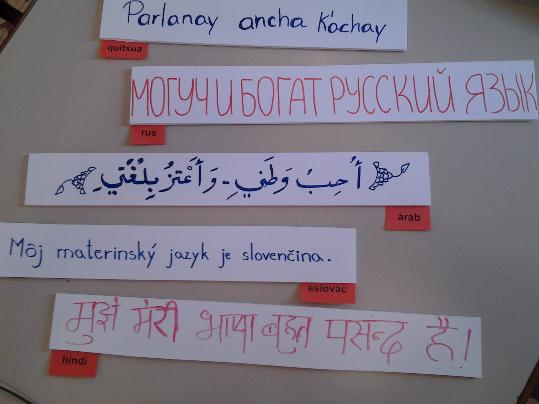 Parlanay ancha K'achay
quítxua
МОГУЧ И БОГАТ РУССКИЙ ЯЗЫК
rus
أُحِبُ وَطَني - وَأَعْتَزُ بِلُغَتي
àrab
Môj materinský jazyk je slovenčina.
eslovac
मुझे मेरी भाषा बहुत पसंन्द है।
hindi